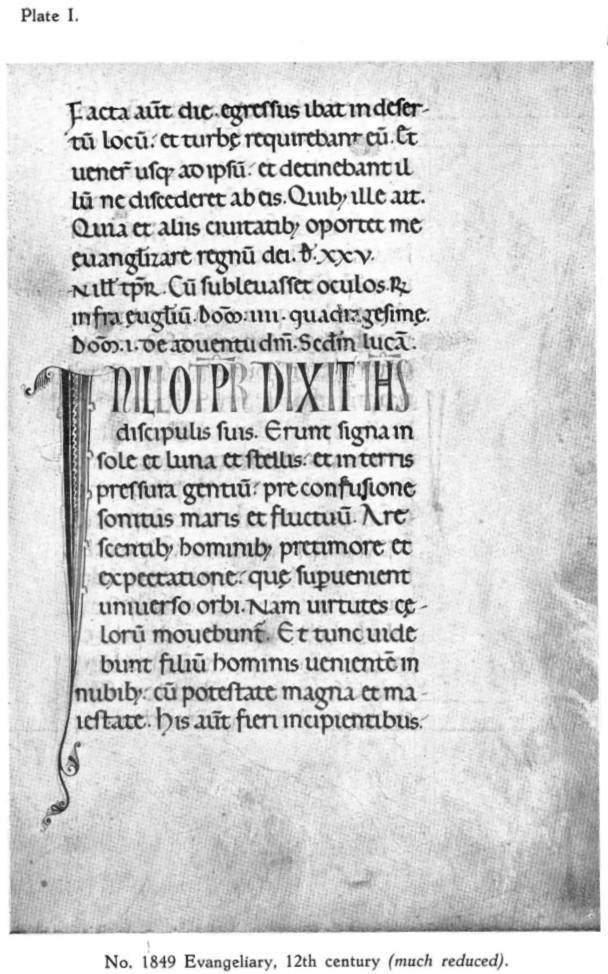 Plate I.
Facta aūt die. egressus ibat in deser-
tū locū. et turbę requirebant eū. Et
uener̄ usq; ad ipsū. et detinebant il
lū ne discederet ab eis. Quib; ille ait.
Quia et aliis ciuitatib; oportet me
euanglizare regnū dei. xxv.
Cū subleuasset oculos.
infra euglīū. Dom̄. iiii. quadragesimę.
Dom̄. i. de aduentu dn̄i. Scd̄m lucā.
IN ILLO TP̄R DIXIT IH̄S
discipulis suis. Erunt signa in
sole et luna et stellis. et in terris
pressura gentiū. pre confusione
sonitus maris et fluctuū. Are
scentib; hominib; pre timore et
expectatione. quę supuenient
uniuerso orbi. Nam uirtutes cę-
lorū mouebunt̄. Et tunc uide
bunt filiū hominis uenientē in
nubib; cū potestate magna et ma-
iestate. His aūt fieri incipientibus.
No. 1849 Evangeliary, 12th century (much reduced).